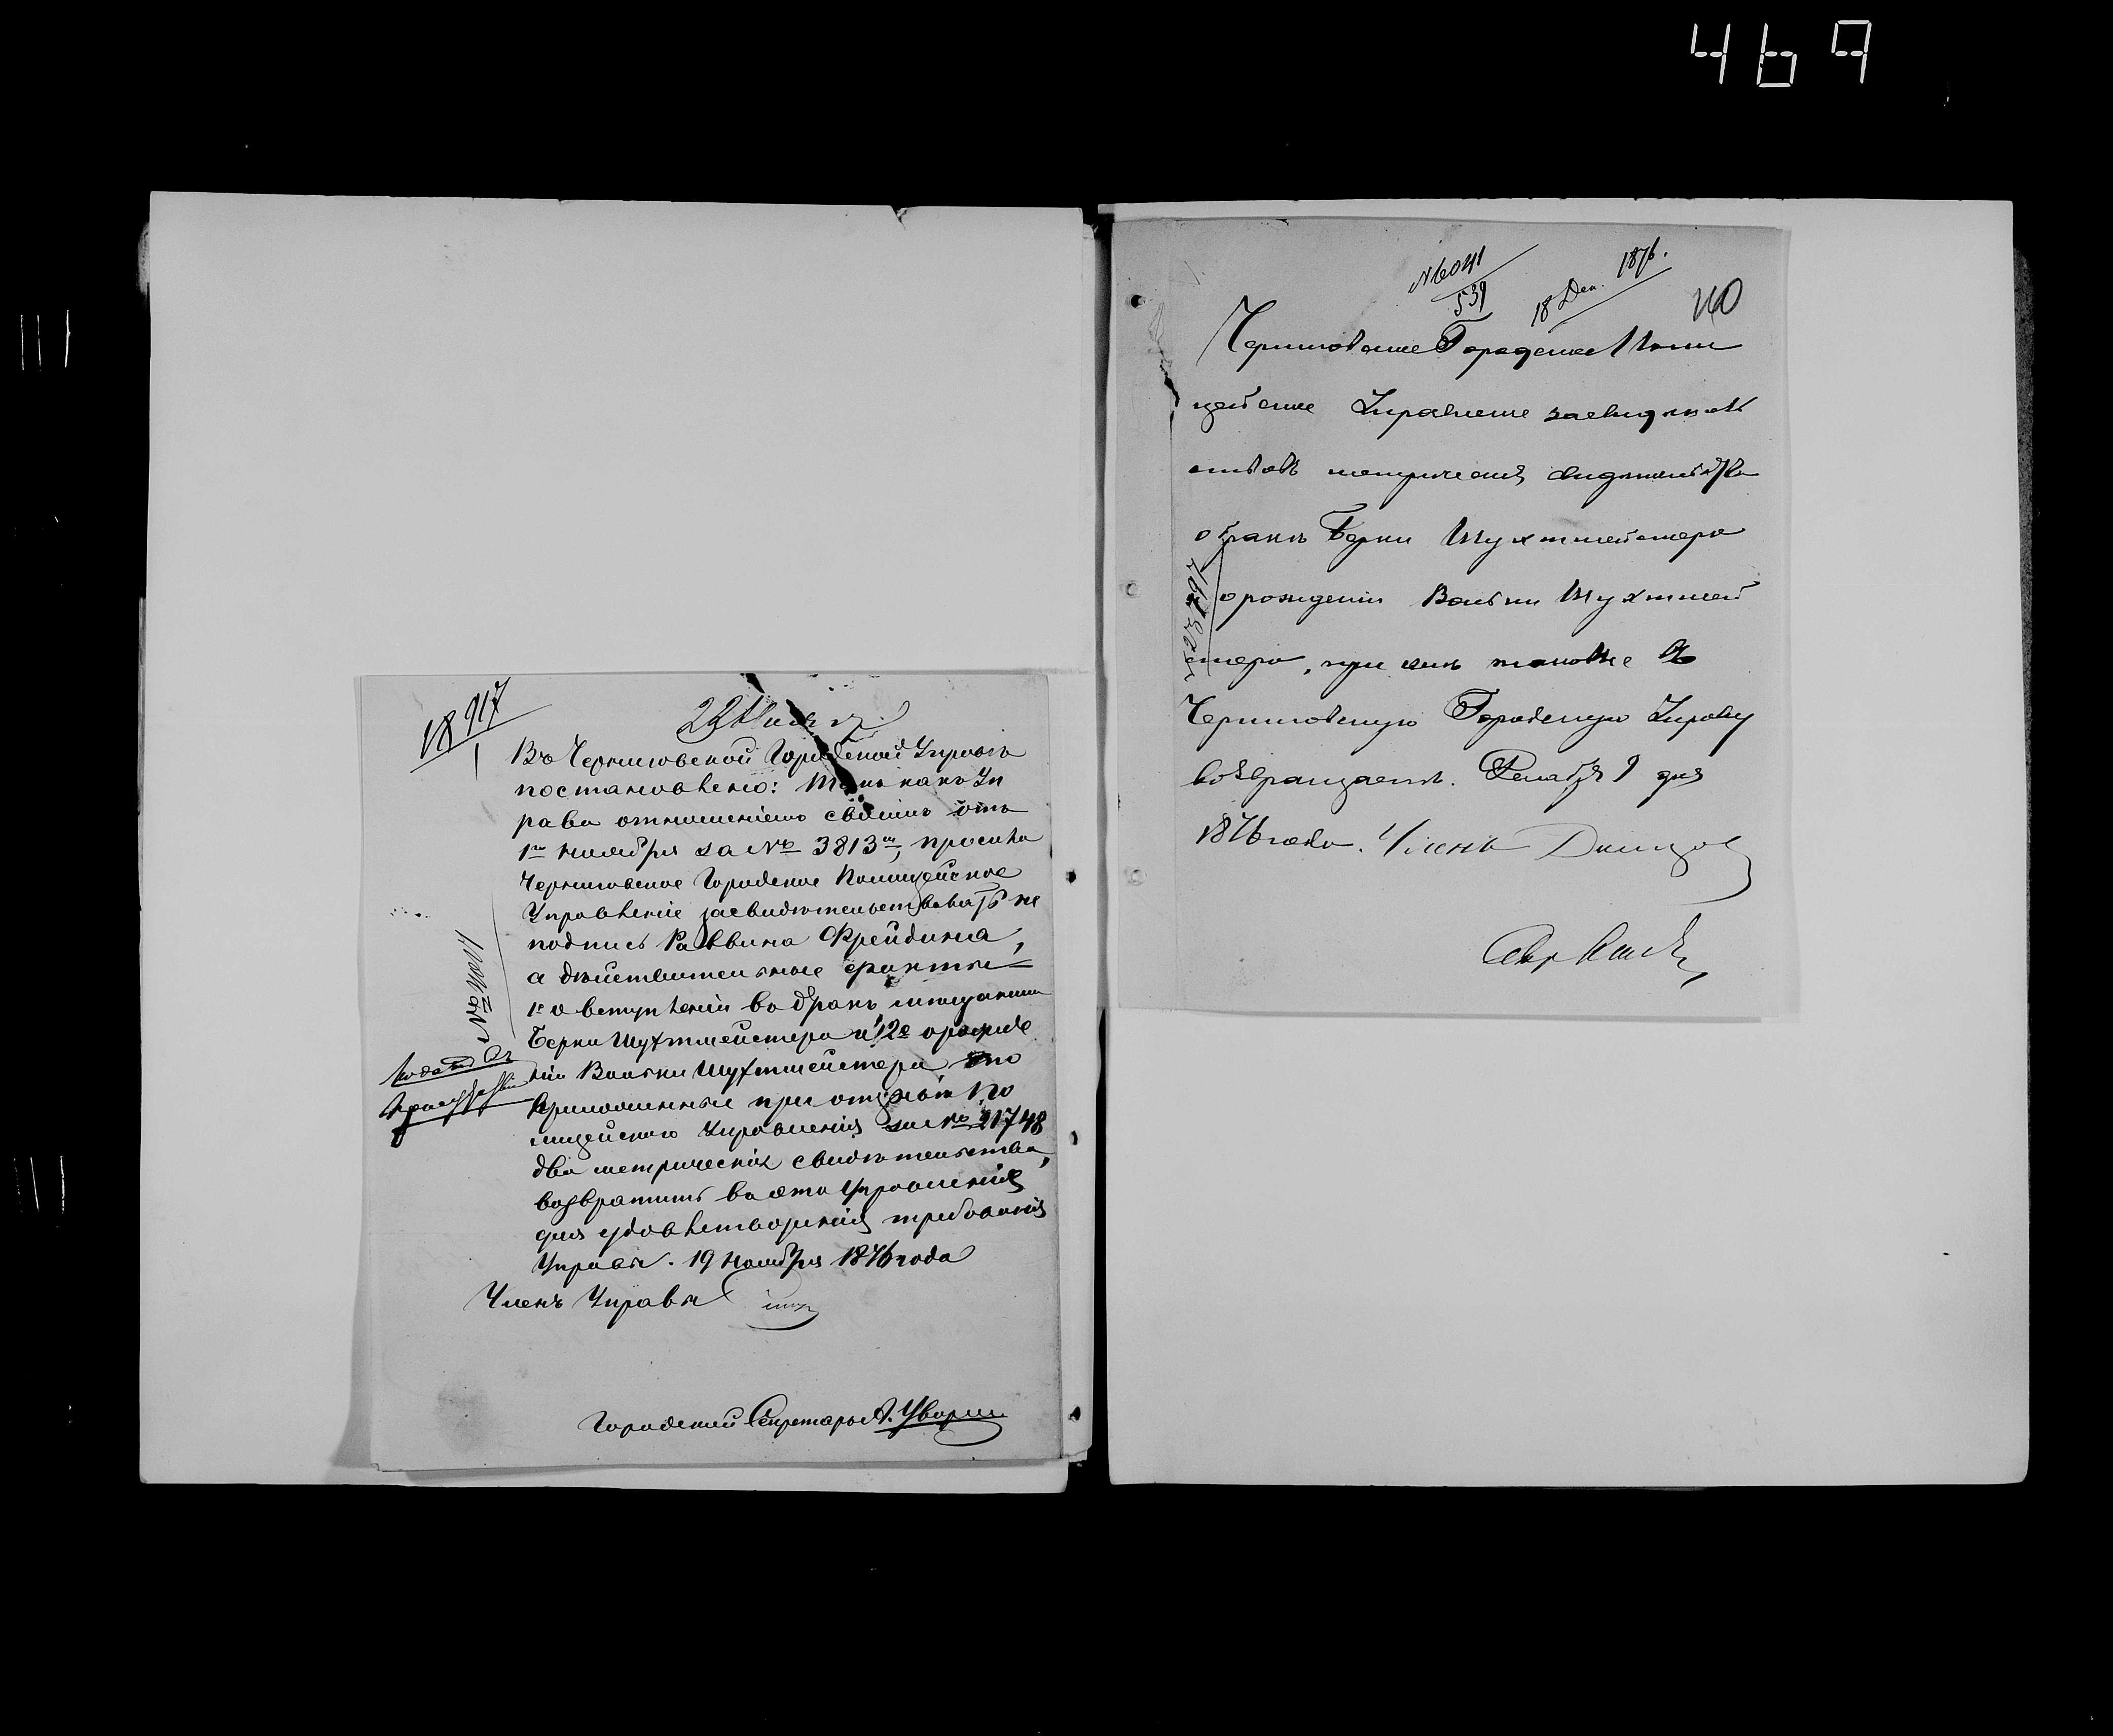 469
18 917
1
22 Ноября
Въ Черниговской Городской Управѣ
постановлено: Такъ какъ Уп
рава отношеніемъ своимъ отъ
1го ноября за № 3813м, просила
Черниговское Городское Полицейское
Управленіе засвидѣтельствовать не
подпись Раввина Фрейдина,
а дѣйствительные факты
1е о вступленіи въ бракъ мѣщанина
Берки Шухтмейстера и 2е о рожде
ніи Вольки Шухтмейстера, то
приложенные при отзывѣ По
лицейскаго Управленія за № 21748
два метрическія свидѣтельства,
возвратить въ это Управленіе
для удовлетворенія требованія
Управы. 19 Ноября 1876 года
Членъ Управы
Городской Секретарь А.
№ 4041
№ 6041
539
18 Дек. 1876.
Черниговское Городское Поли
цейское Управленіе засвидѣтель
ствовавъ метрическія свидѣтельства
о бракѣ Берки Шухтмейстера
о рожденіи Вольки Шухтмей
стера, при семъ таковые въ
Черниговскую Городскую Управу
возвращаетъ. Декабря 9 дня
1876 года. Членъ